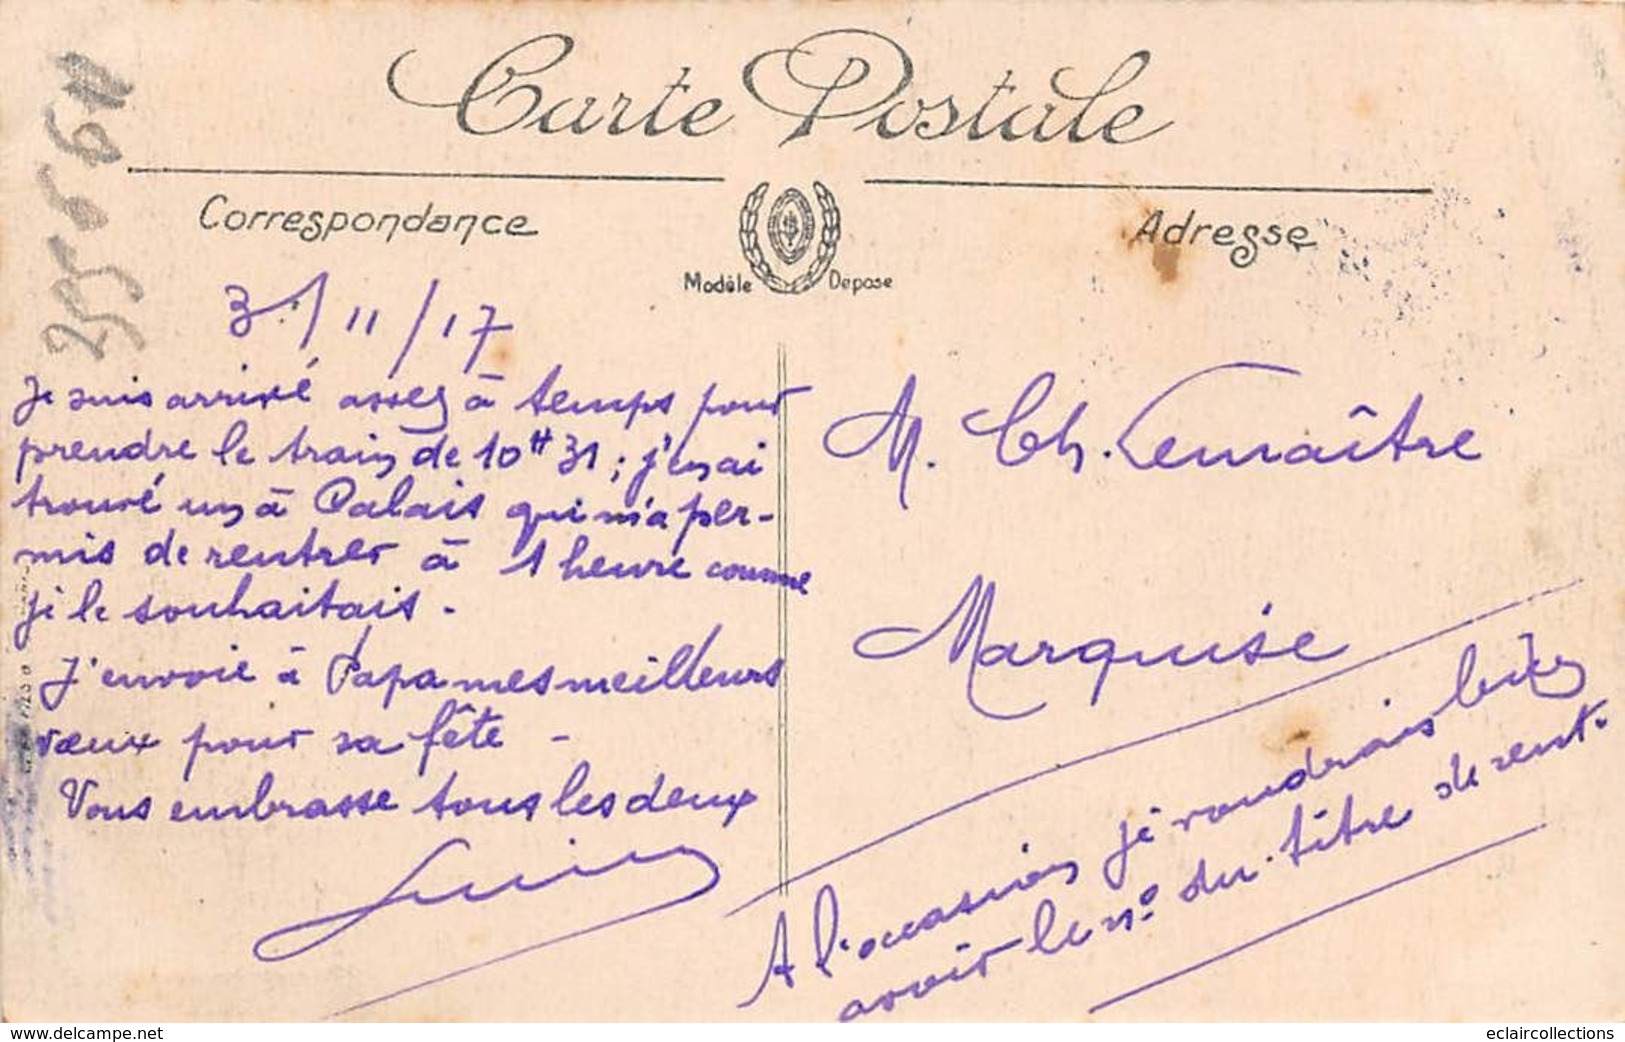 Carte Postale
Correspondance
Adresse
Modèle Deposé
3/11/17
Je suis arrivé assez à temps pour
prendre le train de 10H31; j'en ai
trouvé un à Calais qui m'a per-
mis de rentrer à 1 heure comme
je le souhaitais.
J'envoie à Papa mes meilleurs
vœux pour sa fête -
Vous embrasse tous les deux
M. Ch. Lemaître
Marquise
A l'occasion je voudrais bien
avoir le nº du titre de rente.
www.delcampe.net
eclaircollections